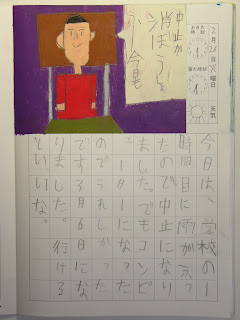 2月28日 火曜日
おきた時刻
ねた時刻
天気
中止か
消ぼう
今日は、学校の1
時間目に雨がふっ
たので中止になり
ました。でもコンピ
ューターになった
のでうれしかった
です。3月6日にな
りました。行ける
といいな。